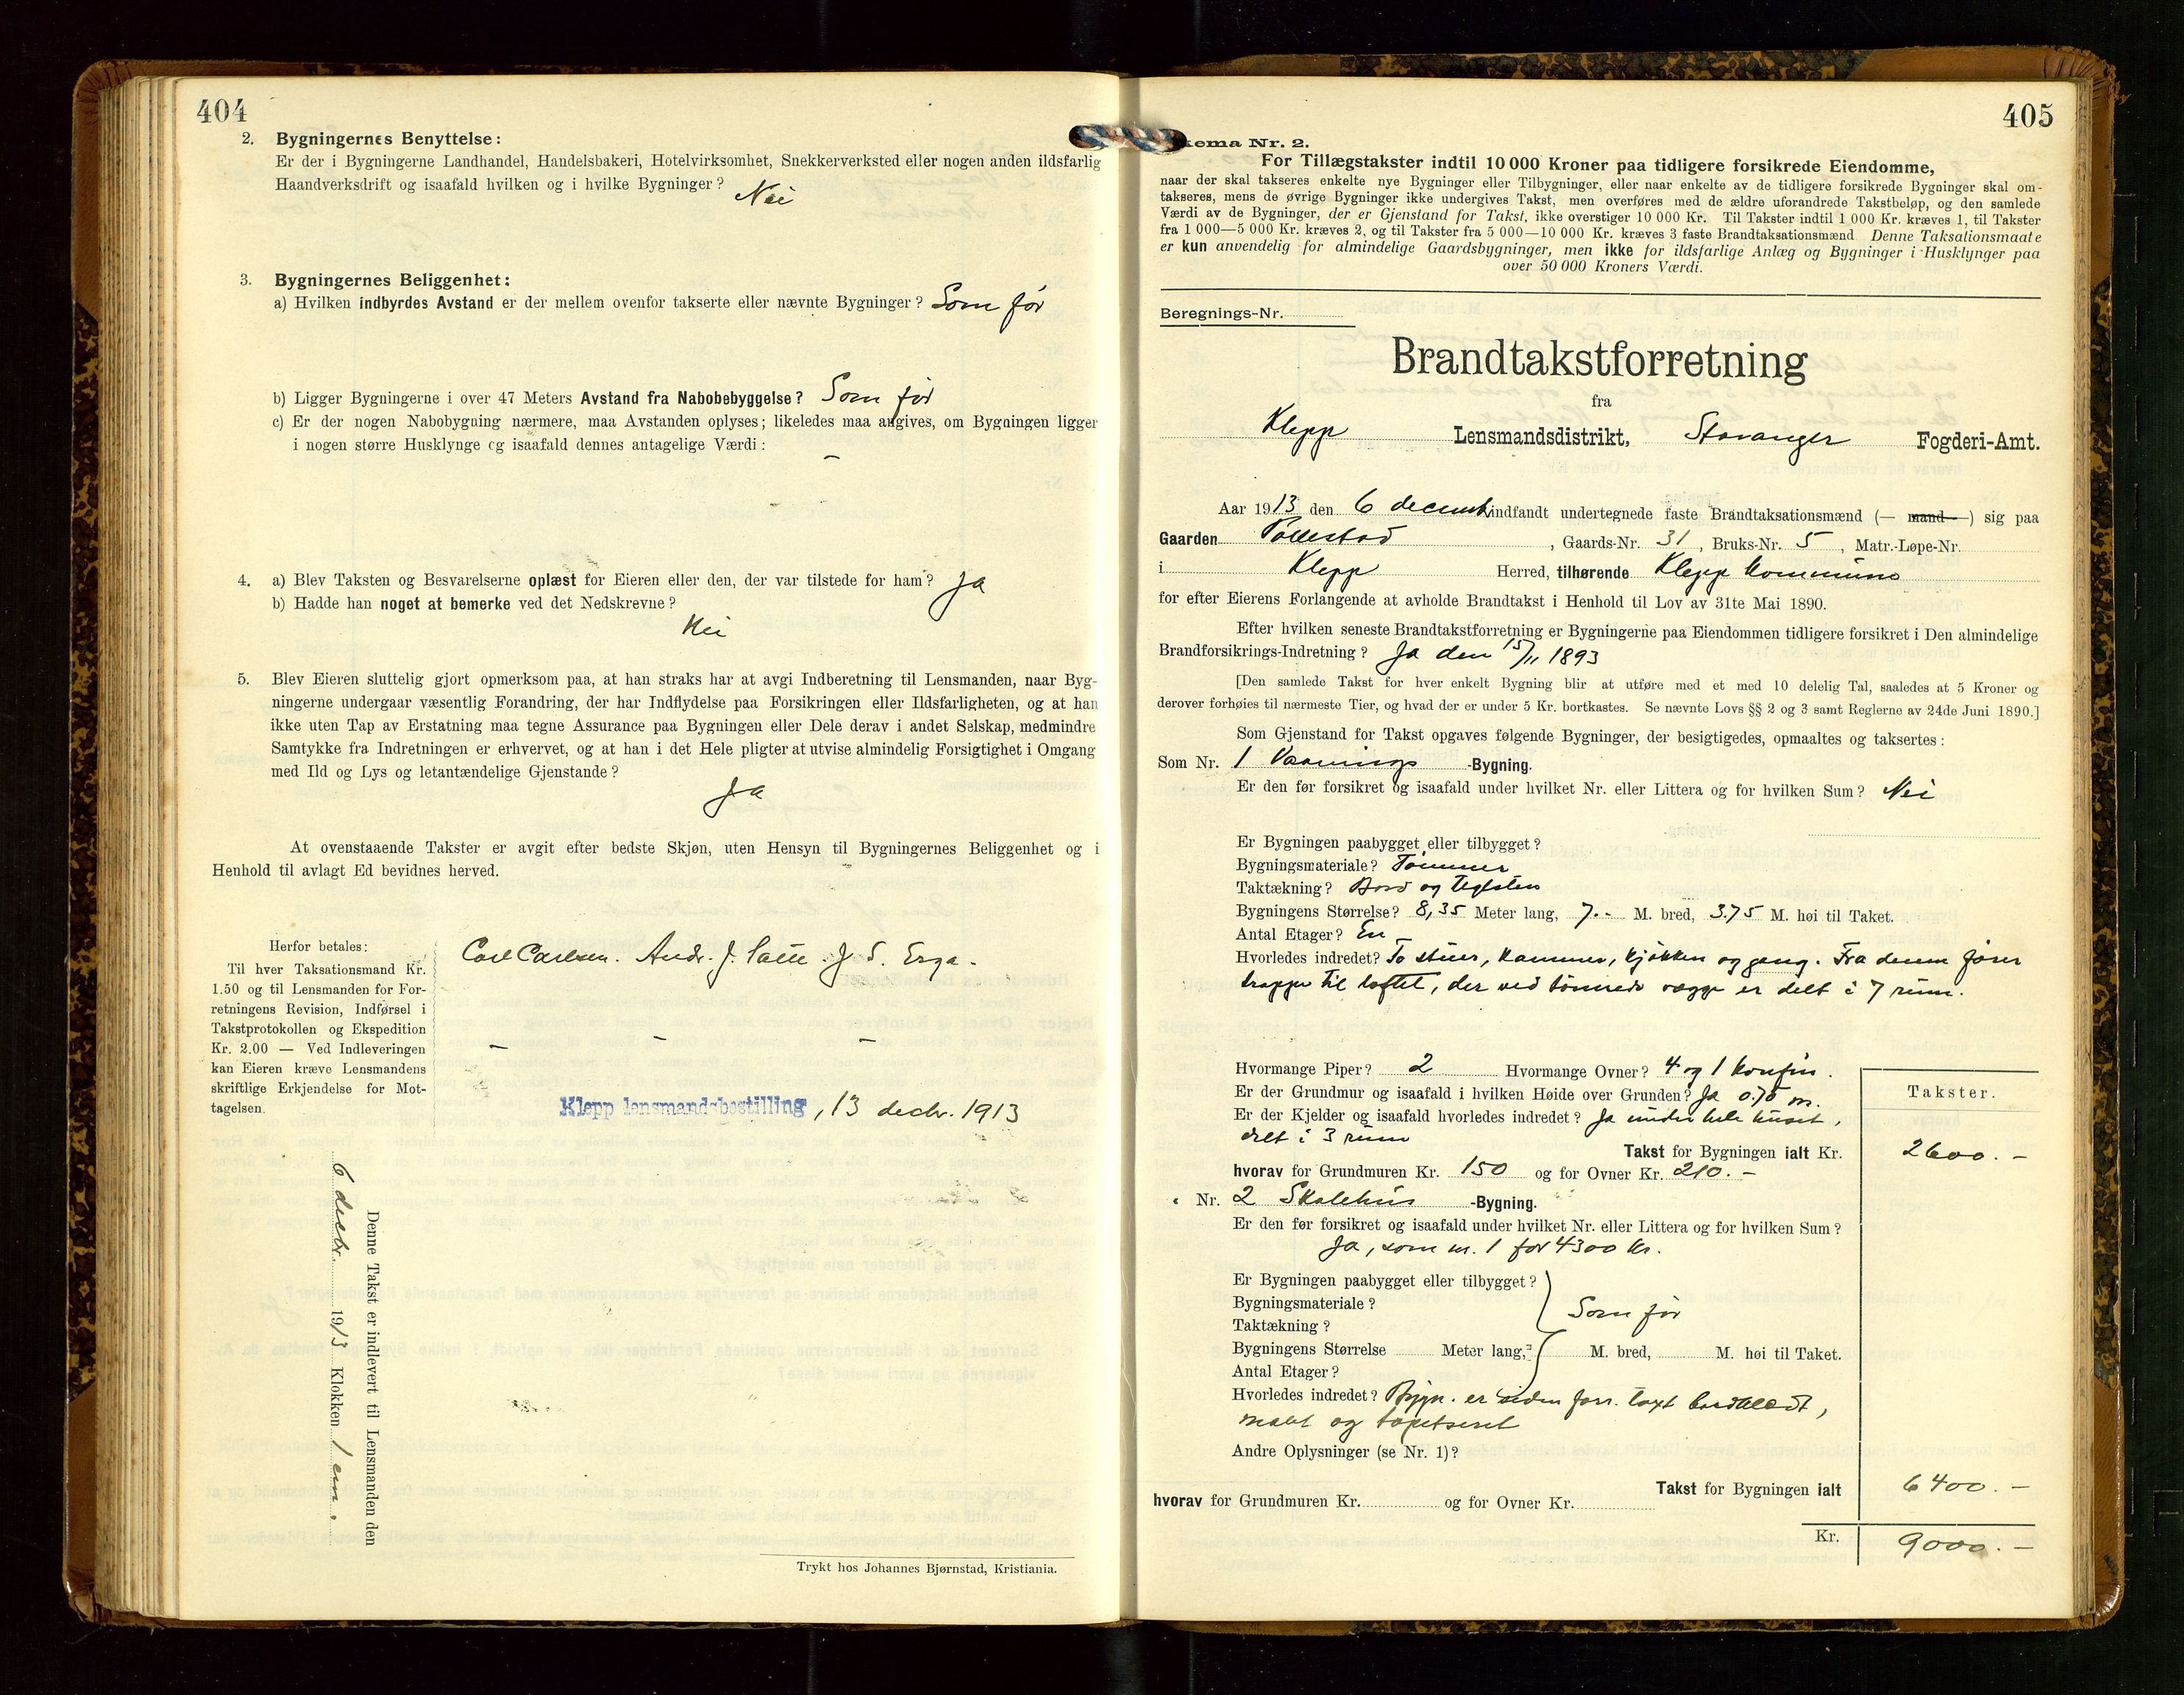 404
2. Bygningernes Benyttelse:
Er der i Bygningerne Landhandel, Handelsbakeri, Hotelvirksomhet, Snekkerverksted eller nogen anden ildsfarlig
Haandverksdrift og isaafald hvilken og i hvilke Bygninger? Nei
3. Bygningernes Beliggenhet:
a) Hvilken indbyrdes Avstand er der mellem ovenfor takserte eller nævnte Bygninger? Som før
b) Ligger Bygningerne i over 47 Meters Avstand fra Nabobebyggelse? Som før
c) Er der nogen Nabobygning nærmere, maa Avstanden oplyses; likeledes maa angives, om Bygningen ligger
i nogen større Husklynge og isaafald dennes antagelige Værdi: –
4. a) Blev Taksten og Besvarelserne oplæst for Eieren eller den, der var tilstede for ham? Ja
b) Hadde han noget at bemerke ved det Nedskrevne?
Nei
5. Blev Eieren sluttelig gjort opmerksom paa, at han straks har at avgi Indberetning til Lensmanden, naar Byg-
ningerne undergaar væsentlig Forandring, der har Indflydelse paa Forsikringen eller Ildsfarligheten, og at han
ikke uten Tap av Erstatning maa tegne Assurance paa Bygningen eller Dele derav i andet Selskap, medmindre
Samtykke fra Indretningen er erhvervet, og at han i det Hele pligter at utvise almindelig Forsigtighet i Omgang
med Ild og Lys og letantændelige Gjenstande?
Ja
At ovenstaaende Takster er avgit efter bedste Skjøn, uten Hensyn til Bygningernes Beliggenhet og i
Henhold til avlagt Ed bevidnes herved.
Herfor betales:
Til hver Taksationsmand Kr.
1.50 og til Lensmanden for For-
retningens Revision, Indførsel i
Takstprotokollen og Ekspedition
Kr. 2.00 — Ved Indleveringen
kan Eieren kræve Lensmandens
skriftlige Erkjendelse for Mot-
tagelsen.
Carl Carlsen. Andr. J. J. S. Erga.
– – –
Klepp lensmandsbestilling, 13 decbr. 1913
Denne Takst er indlevert til Lensmanden den
6 decbr. 1913 Klokken 1 em.
Trykt hos Johannes Bjørnstad, Kristiania.
405
kema Nr. 2.
For Tillægstakster indtil 10 000 Kroner paa tidligere forsikrede Eiendomme,
naar der skal takseres enkelte nye Bygninger eller Tilbygninger, eller naar enkelte av de tidligere forsikrede Bygninger skal om-
takseres, mens de øvrige Bygninger ikke undergives Takst, men overføres med de ældre uforandrede Takstbeløp, og den samlede
Værdi av de Bygninger, der er Gjenstand for Takst, ikke overstiger 10 000 Kr. Til Takster indtil 1 000 Kr. kræves 1, til Takster
fra 1 000—5 000 Kr. kræves 2, og til Takster fra 5 000—10 000 Kr. kræves 3 faste Brandtaksationsmænd Denne Taksationsmaate
er kun anvendelig for almindelige Gaardsbygninger, men ikke for ildsfarlige Anlæg og Bygninger i Husklynger paa
over 50 000 Kroners Værdi.
Beregnings-Nr.
Brandtakstforretning
fra
Klepp Lensmandsdistrikt, Stavanger Fogderi-Amt.
Aar 1913 den 6 decemb indfandt undertegnede faste Brandtaksationsmænd (— mand—) sig paa
Gaarden Pollestad, Gaards-Nr. 31, Bruks-Nr. 5, Matr.-Løpe-Nr.
i Klepp Herred, tilhørende Klepp kommune
for efter Eierens Forlangende at avholde Brandtakst i Henhold til Lov av 31te Mai 1890.
Efter hvilken seneste Brandtakstforretning er Bygningerne paa Eiendommen tidligere forsikret i Den almindelige
Brandforsikrings-Indretning? Ja den 15/11 1893
[Den samlede Takst for hver enkelt Bygning blir at utføre med et med 10 delelig Tal, saaledes at 5 Kroner og
derover forhøies til nærmeste Tier, og hvad der er under 5 Kr. bortkastes. Se nævnte Lovs §§ 2 og 3 samt Reglerne av 24de Juni 1890.]
Som Gjenstand for Takst opgaves følgende Bygninger, der besigtigedes, opmaaltes og taksertes:
Som Nr. 1 Vaanings -Bygning.
Er den før forsikret og isaafald under hvilket Nr. eller Littera og for hvilken Sum? Nei
Er Bygningen paabygget eller tilbygget?
Bygningsmateriale? Tømmer
Taktækning? Bord og teglsten
Bygningens Størrelse? 8,35 Meter lang, 7.- M. bred, 3.75 M. høi til Taket.
Antal Etager? En
Hvorledes indredet? To stuer, kammer, kjøkken og gang. Fra denne fører
trappe til loftet, der ved tømrede vægge er delt i 7 rum.
Hvormange Piper? 2 Hvormange Ovner? 4 og 1 komfur.
Er der Grundmur og isaafald i hvilken Høide over Grunden? Ja 0.75 m.
Er der Kjelder og isaafald hvorledes indredet? Ja under hele huset,
delt i 3 rum
Takster.
Takst for Bygningen ialt Kr. 2600.-
hvorav for Grundmuren Kr. 150 og for Ovner Kr. 210.-
" Nr. 2 Skolehus -Bygning.
Er den før forsikret og isaafald under hvilket Nr. eller Littera og for hvilken Sum?
Ja, som nr. 1 for 4300 kr.
Er Bygningen paabygget eller tilbygget?
Bygningsmateriale? Som før
Taktækning?
Bygningens Størrelse Meter lang, M. bred, M. høi til Taket.
Antal Etager?
Hvorledes indredet? Bygn. er siden forr. taxt bordklædt,
malt og tapetseret
Andre Oplysninger (se Nr. 1)?
Takst for Bygningen ialt 6400.-
hvorav for Grundmuren Kr. og for Ovner Kr.
Kr. 9000.-